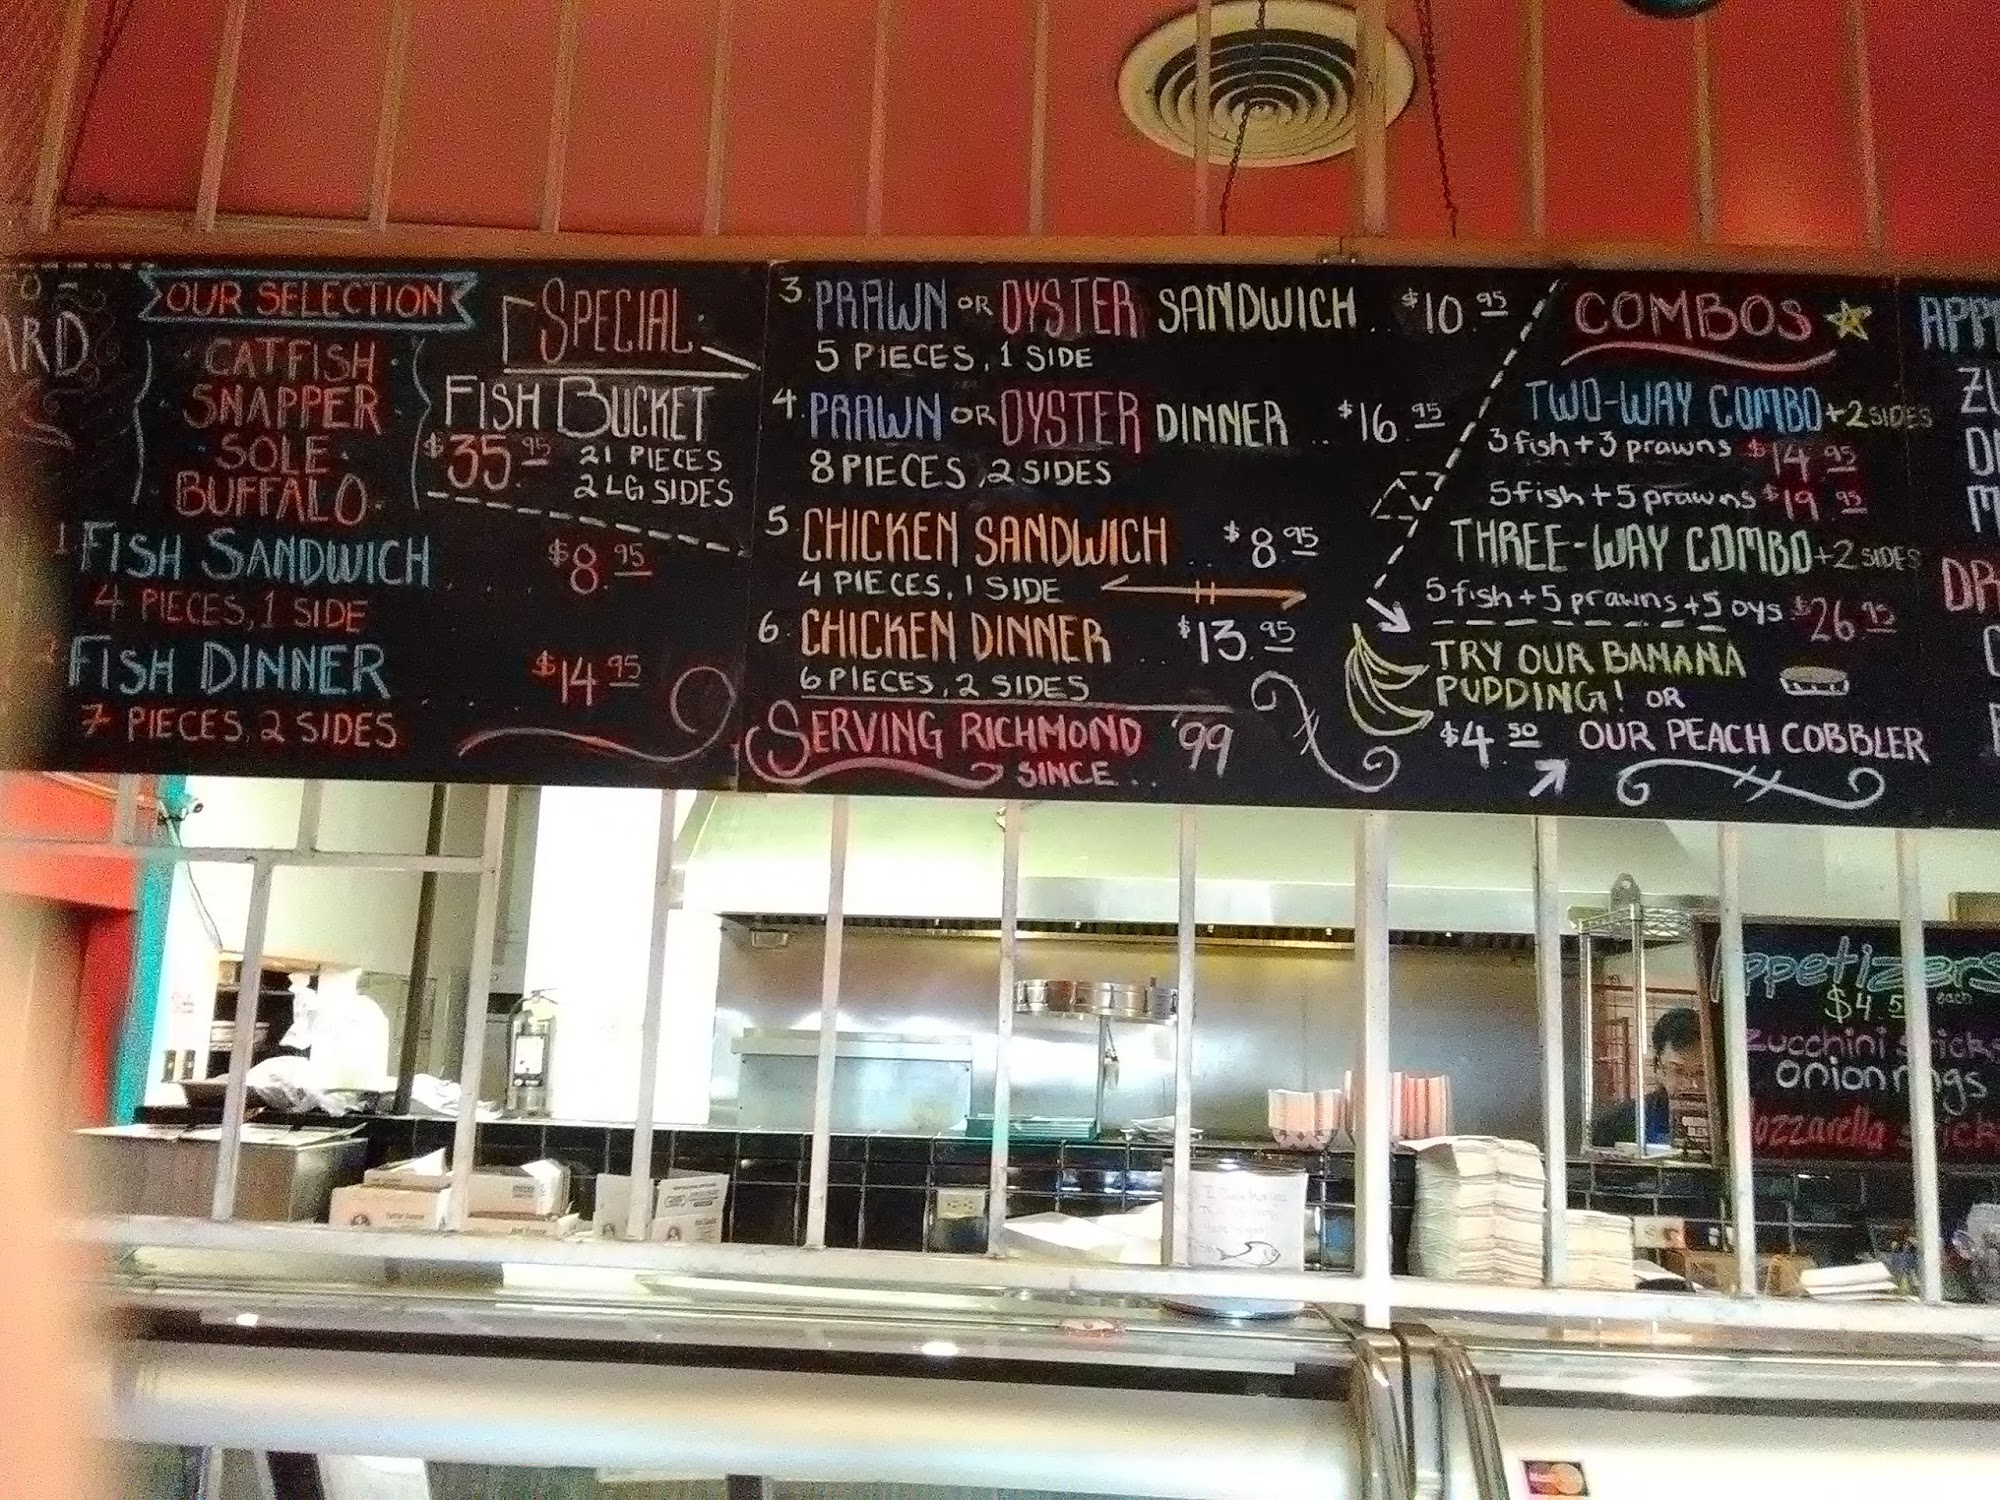 ARD
OUR SELECTION
CATFISH
SNAPPER
SOLE
BUFFALO
SPECIAL
FISH BUCKET
$35.95 21 PIECES
2 LG SIDES
1. FISH SANDWICH $8.95
4 PIECES, 1 SIDE
FISH DINNER $14.95
7 PIECES, 2 SIDES
3. PRAWN OR OYSTER SANDWICH .. $10.95
5 PIECES, 1 SIDE
4. PRAWN OR OYSTER DINNER .. $16.95
8 PIECES, 2 SIDES
5 CHICKEN SANDWICH .. $8.95
4 PIECES, 1 SIDE
6. CHICKEN DINNER .. $13.95
6 PIECES, 2 SIDES
SERVING RICHMOND
SINCE... '99
COMBOS
TWO-WAY COMBO +2 SIDES
3 fish + 3 prawns $14.95
5 fish + 5 prawns $19.95
THREE-WAY COMBO +2 SIDES
5 fish + 5 prawns + 5 oys $26.95
TRY OUR BANANA
PUDDING! OR
$4.50 OUR PEACH COBBLER
APP
ZU
DR
Appetizers
$4.5 each
Zucchini sticks
Onion rings
Mozzarella stick